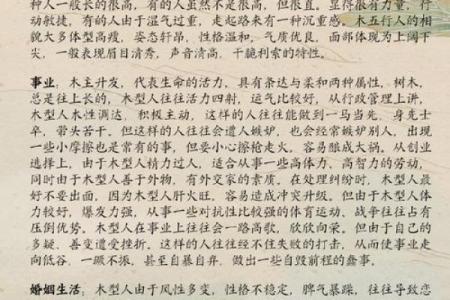 种人一般长的很高，有的人虽然不是很高，但很直，显得很有力量，行
动敏捷，有的人由于湿气过重，走起路来有一种沉重感。木五行人的相
貌大多体型高瘦，姿态轩昂，性格温和，气质优良，面部体现为上阔下
尖，一般表现眉目清秀，声音清高，干脆利索的特性。
事业：木主升发，代表生命的活力，具有条达与柔和两种属性，树木，
总是往上长的，木型人往往活力四射，运气比较好，从行政管理上讲，
木型人木性调达，积极主动，这样的人往往能做到一马当先，身先士
卒，带头苦干。但这样的人往往会遭人嫉妒，也会经常嫉妒别人，出现
一些小摩擦也是常有的事，但要小心擦枪走火，容易酿成大祸。从创业
选择上，由于木型人精力过人，适合从事一些高体力，高智力的劳动，
同时由于木型人善于外物，有外交家的素质。在处理纠纷时，木型人最
好不要出面，因为木型人肝火旺，容易造成冲突升级。但由于木型人体
力较好，爆发力强，从事一些对抗性比较强的体育运动、战争往往占有
压倒优势。木型人在事业上往往会一路高歌，欣欣向荣。但由于自己的
多疑、善变遭受挫折。这样的人往往经不住失败的打击，从而使事业走
向低谷，一蹶不振，甚至自暴自弃，做出一些自毁前程的蠢事。
婚姻生活：木型人由于风性多变，性格不稳定，脾气暴躁，往往导致恋